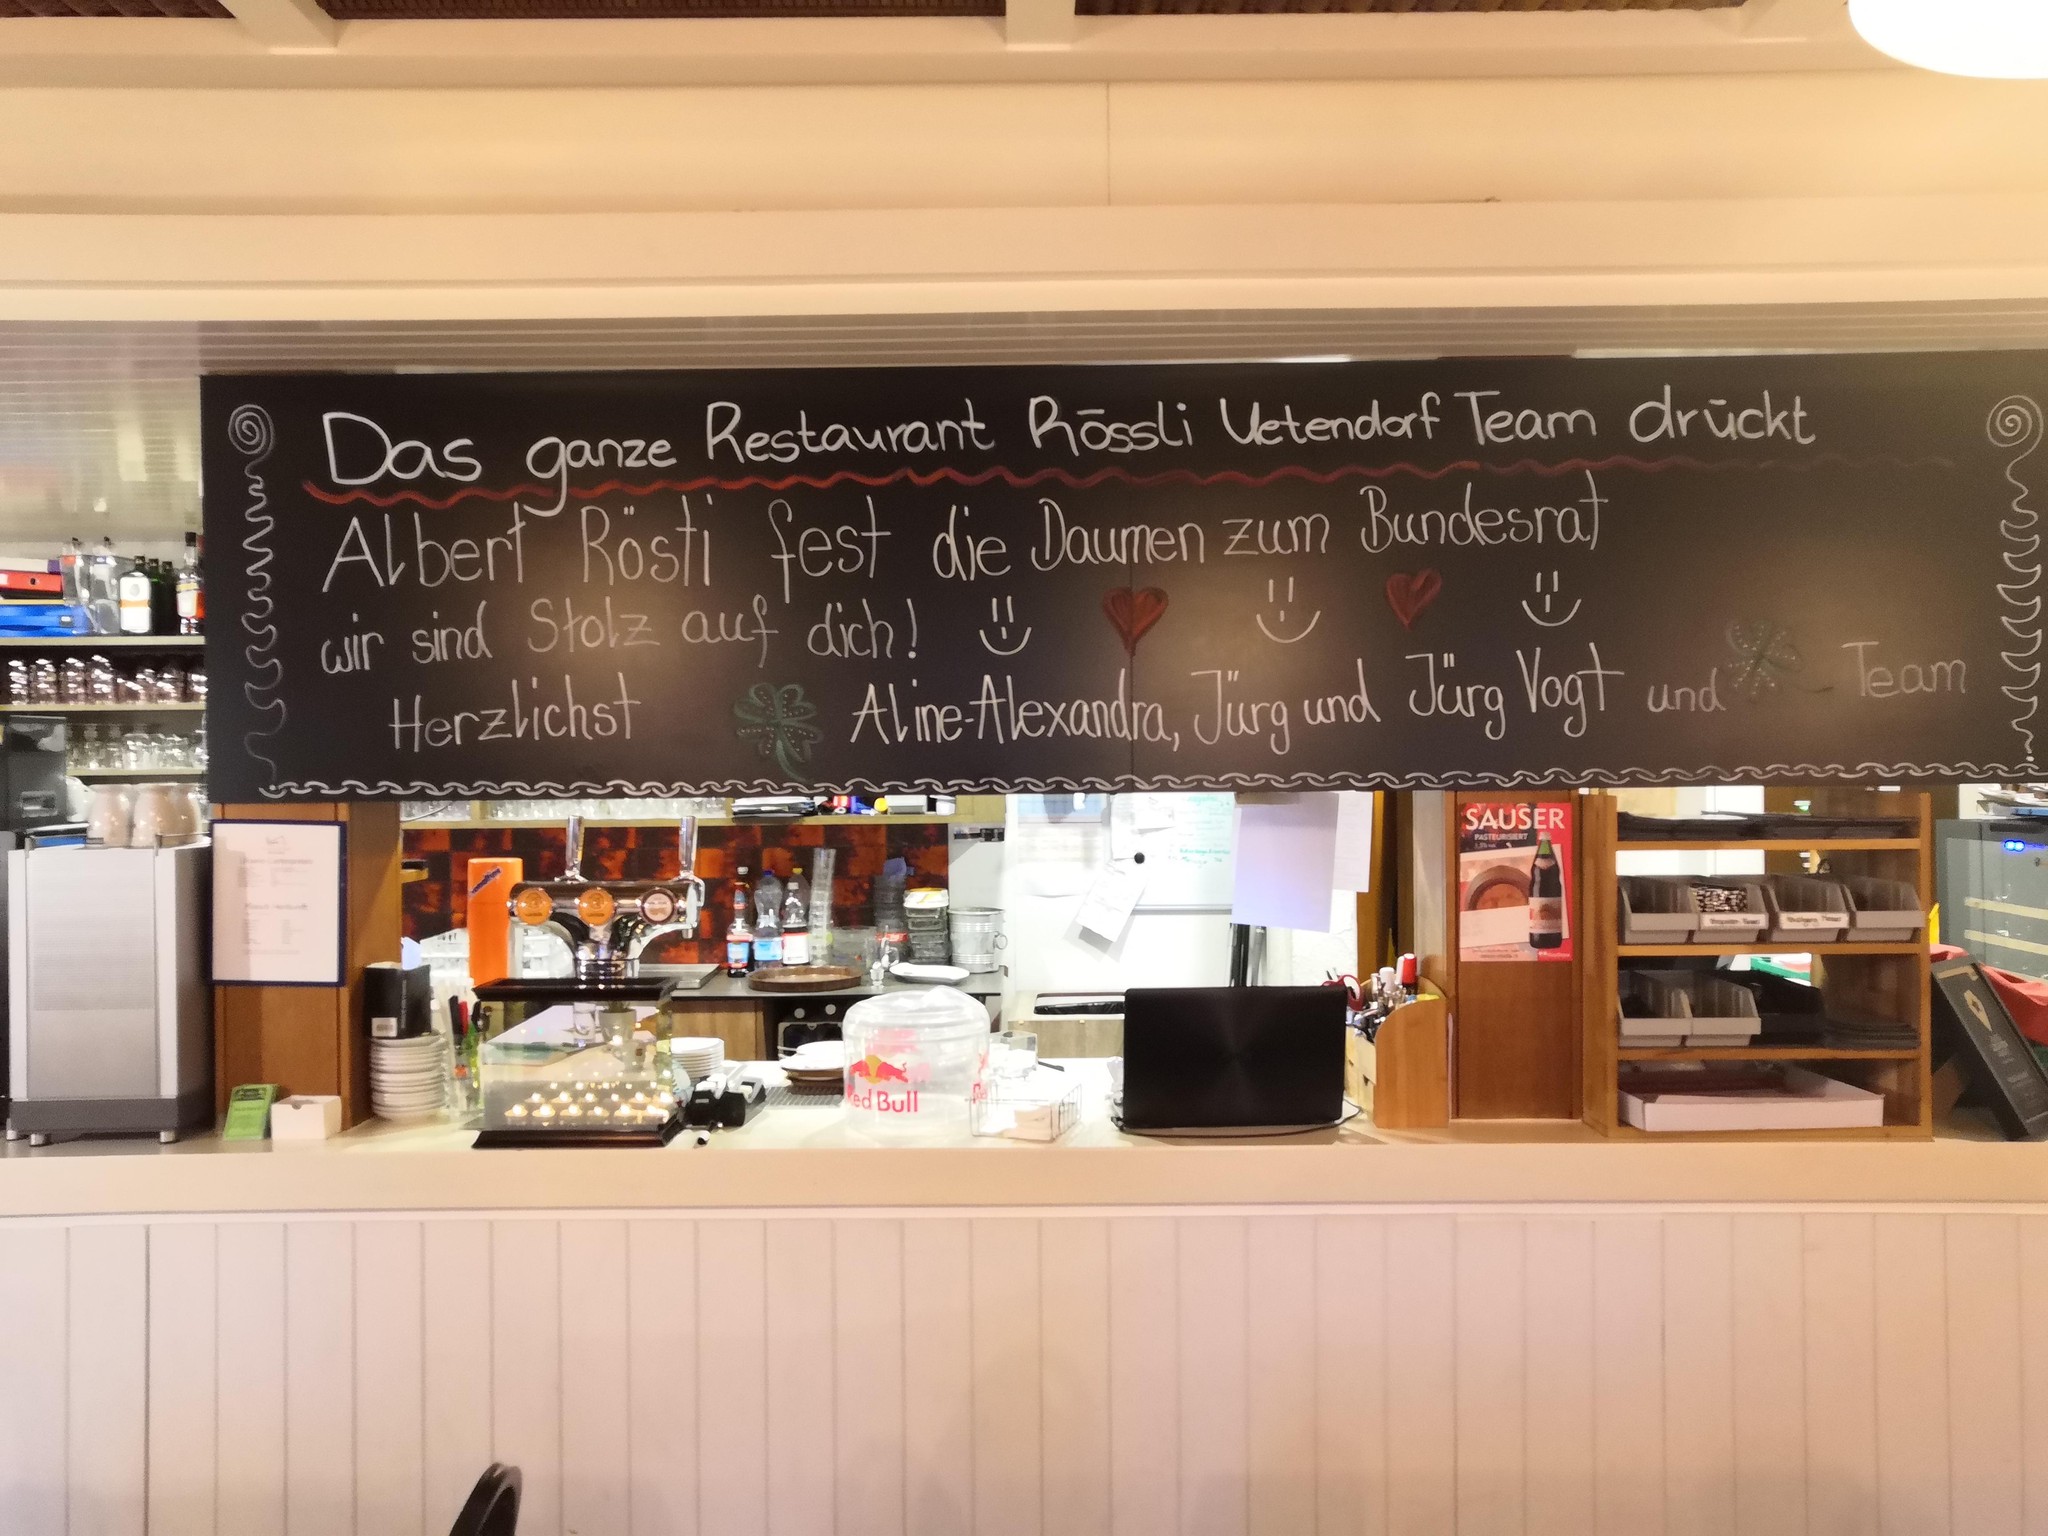 Das ganze Restaurant Rössli Uetendorf Team drückt
Albert Rösti fest die Daumen zum Bundesrat
wir sind Stolz auf dich!
Herzlichst Aline-Alexandra, Jürg und Jürg Vogt und Team
SAUSER
PASTEURISIERT
Red Bull